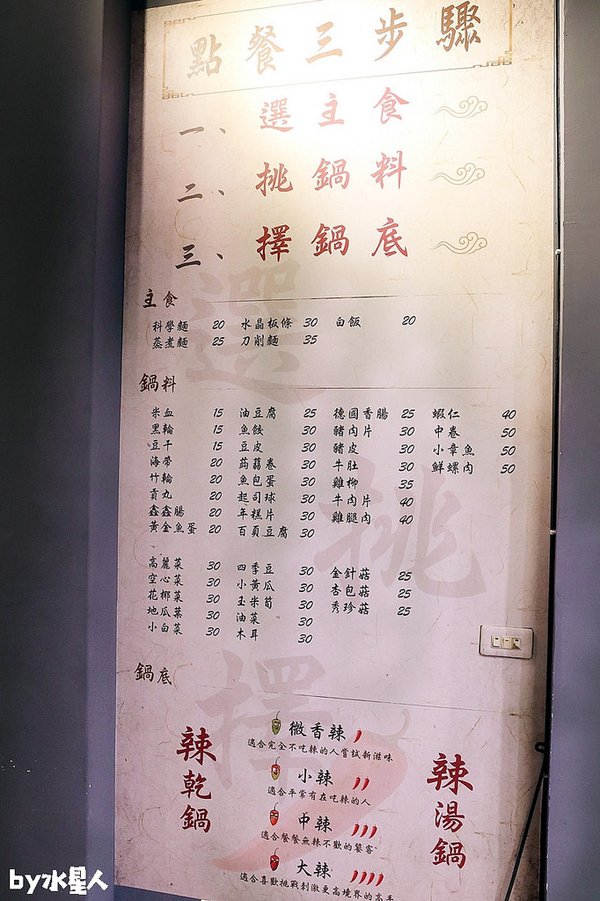 點餐三步驟
一、選主食
二、挑鍋料
三、擇鍋底
主食
科學麵 20 水晶板條 30 白飯 20
蒸煮麵 25 刀削麵 35
鍋料
米血 15 油豆腐 25 德國香腸 25 蝦仁 40
黑輪 15 魚餃 30 豬肉片 30 中卷 50
豆干 15 豆皮 30 豬皮 30 小章魚 50
海帶 20 蒟蒻卷 30 牛肚 30 鮮螺肉 50
竹輪 20 魚包蛋 30 雞柳 35
貢丸 20 起司球 30 牛肉片 40
鑫鑫腸 20 年糕片 30 雞腿肉 40
黃金魚蛋 20 百頁豆腐 30
高麗菜 30 四季豆 30 金針菇 25
空心菜 30 小黃瓜 30 杏包菇 25
花椰菜 30 玉米筍 30 秀珍菇 25
地瓜葉 30 油菜 30
小白菜 30 木耳 30
鍋底
辣乾鍋
微香辣
適合完全不吃辣的人嘗試新滋味
小辣
適合平常有在吃辣的人
中辣
適合餐餐無辣不歡的饕客
大辣
適合喜歡挑戰刺激更高境界的高手
辣湯鍋
選
挑
擇
by水星人